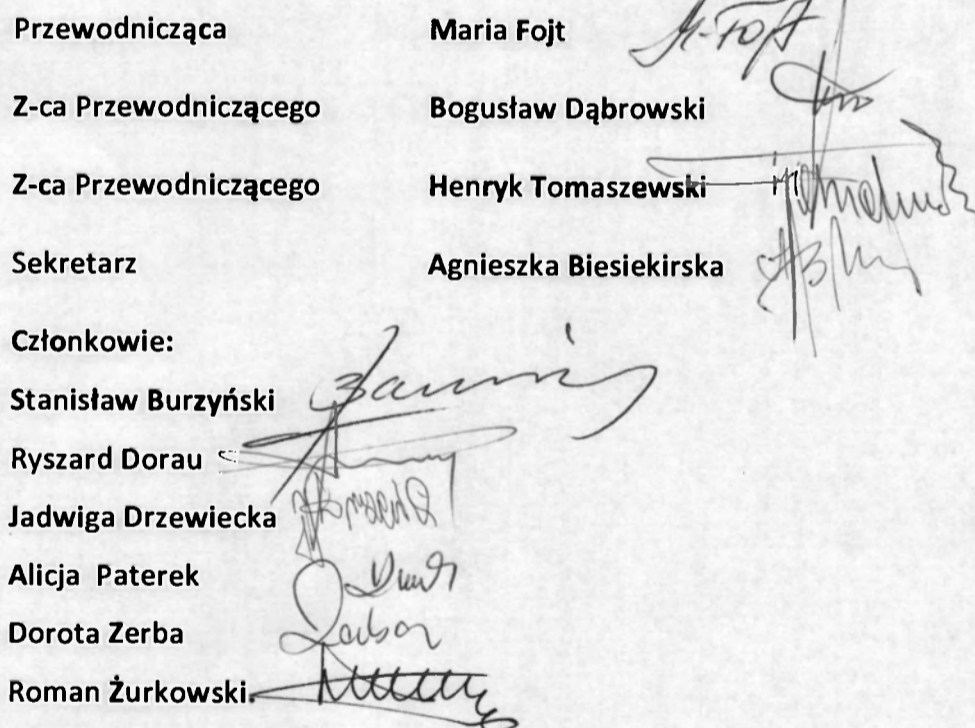 Przewodnicząca Maria Fojt M. Fojt
Z-ca Przewodniczącego Bogusław Dąbrowski
Z-ca Przewodniczącego Henryk Tomaszewski
Sekretarz Agnieszka Biesiekirska
Członkowie:
Stanisław Burzyński
Ryszard Dorau
Jadwiga Drzewiecka
Alicja Paterek
Dorota Zerba
Roman Żurkowski.